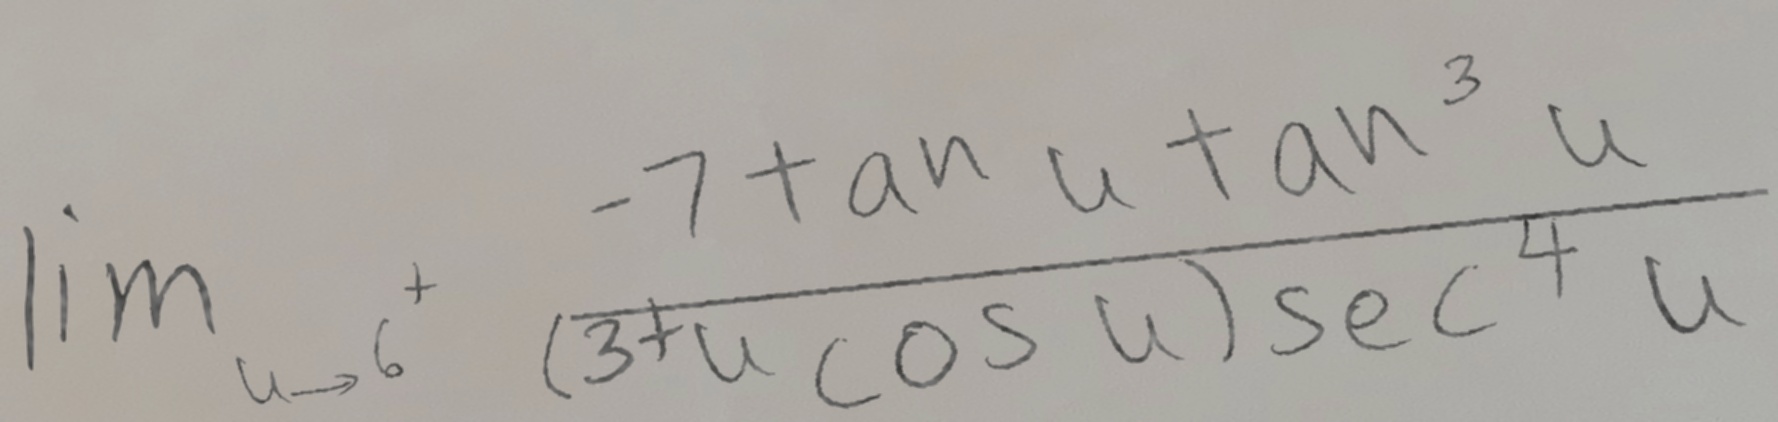 \lim_{u \to 6^+} \frac{-7 \tan u \tan^3 u}{(3 + u \cos u) \sec^4 u}